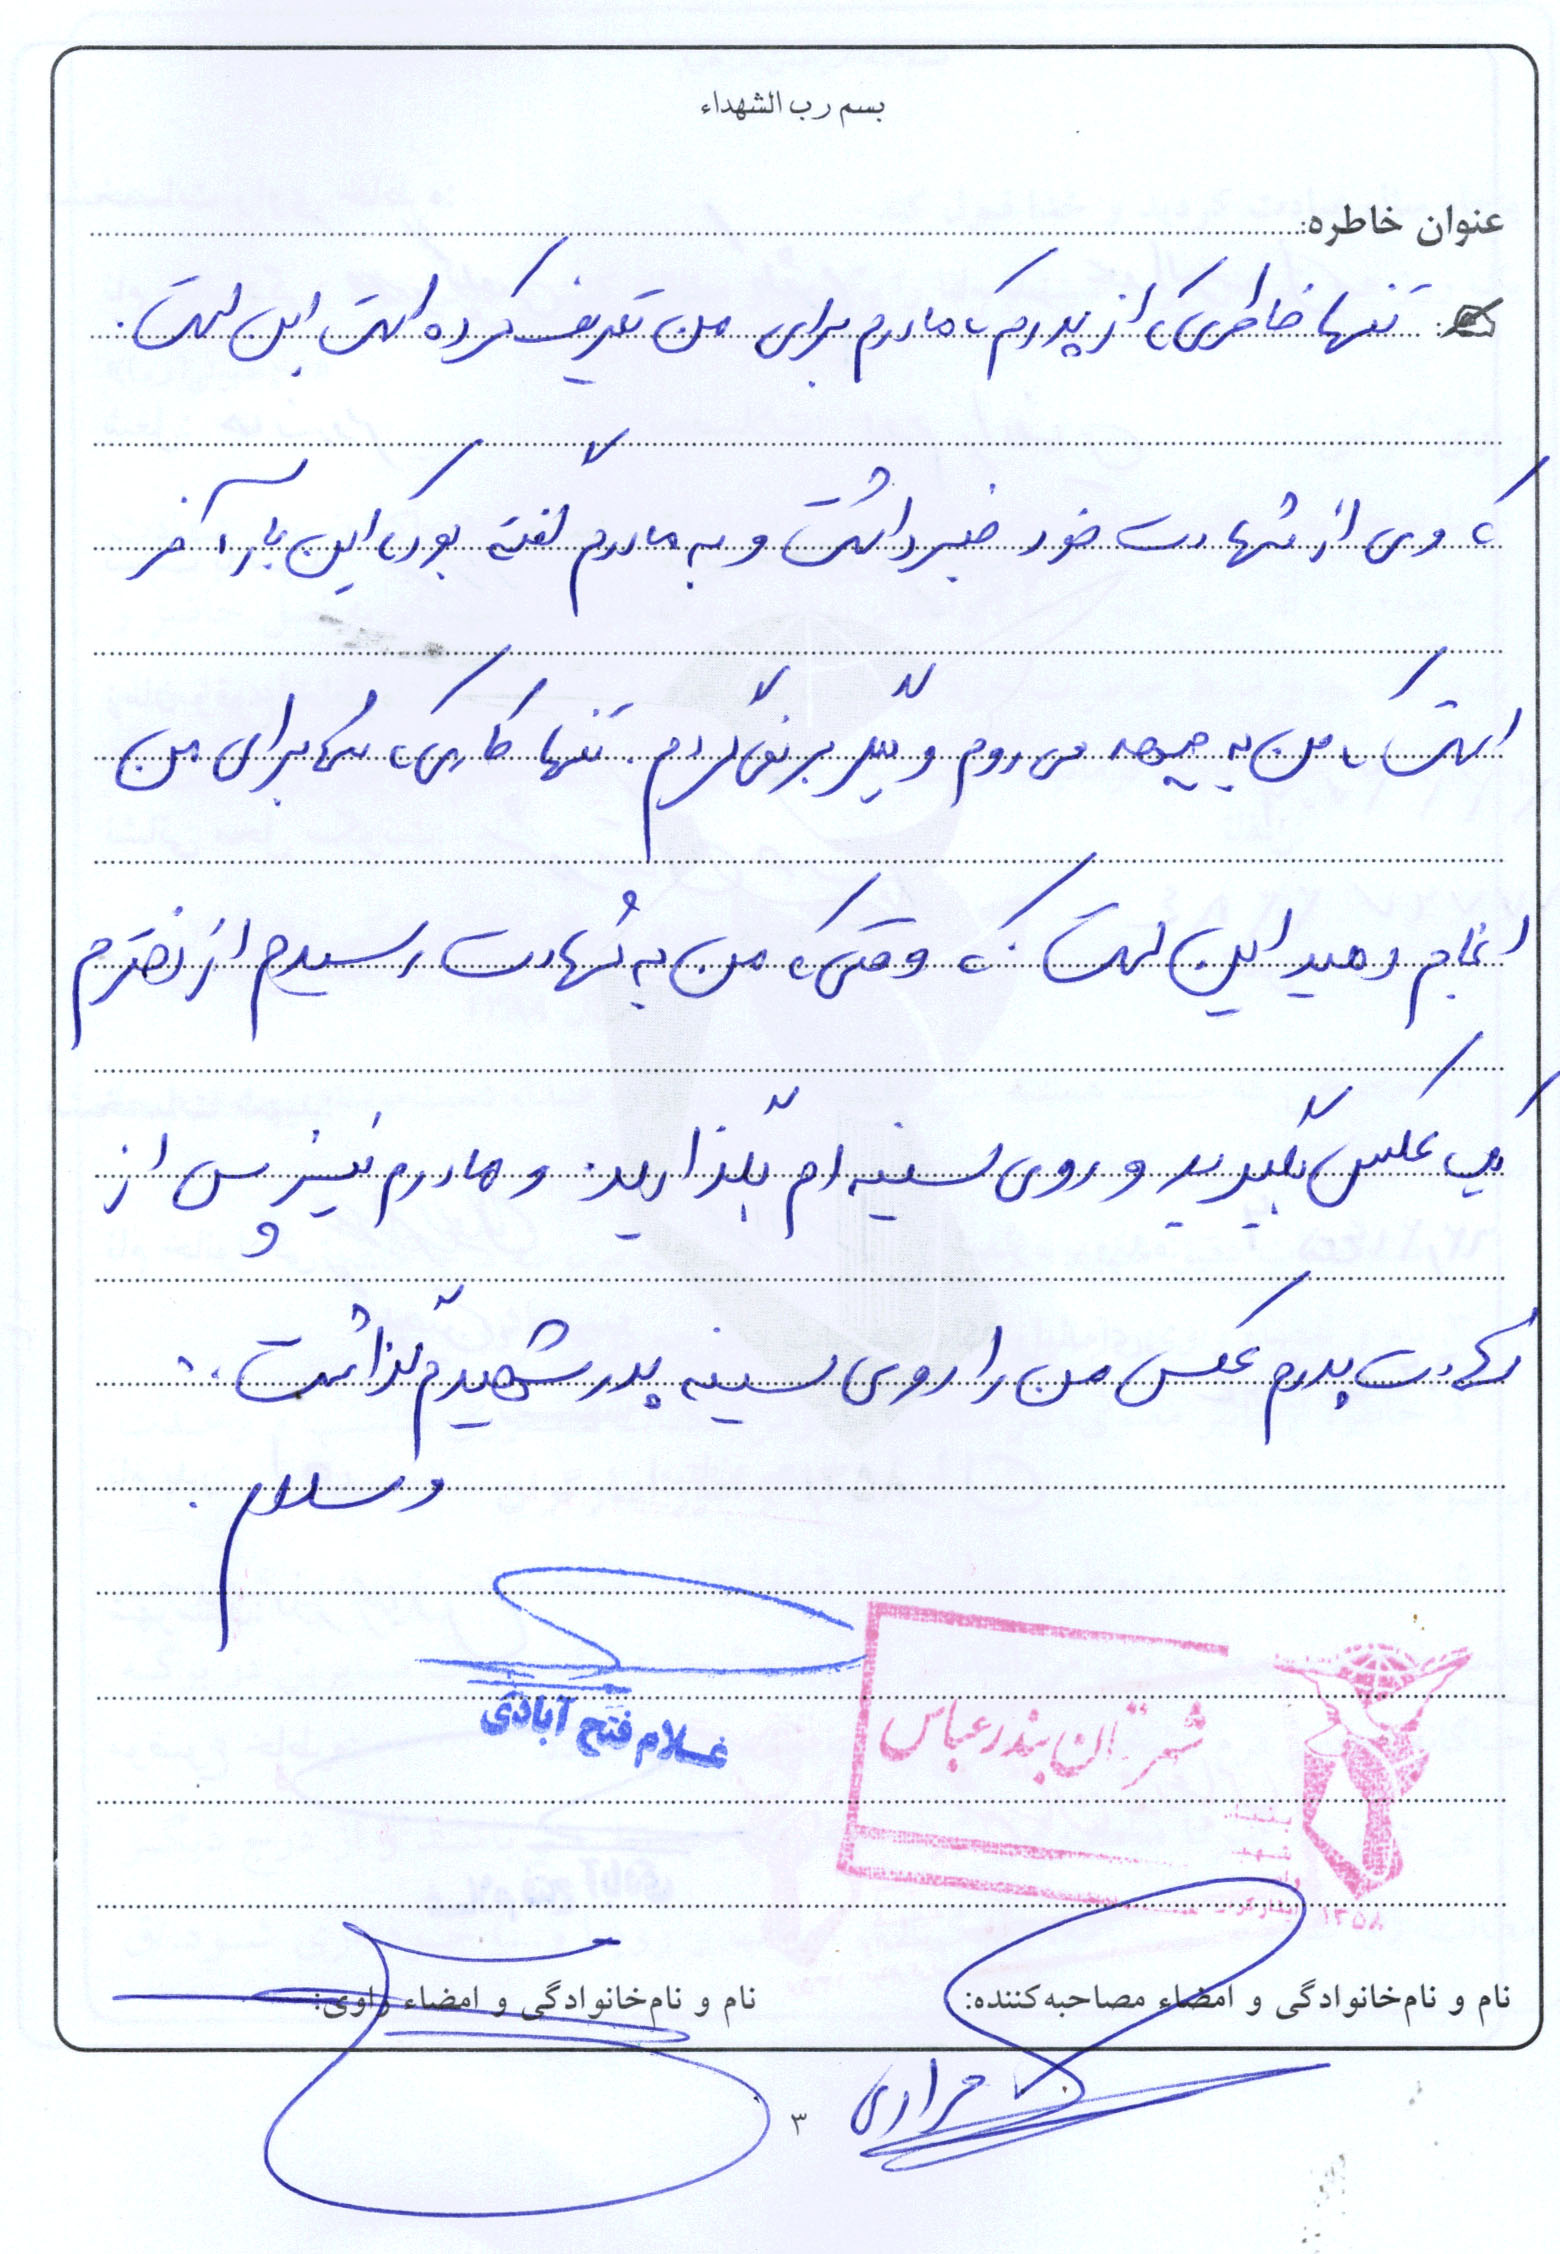 بسم رب الشهداء
عنوان خاطره:
تنها خاطره‌ای که از پدرم که مادرم برای من تعریف کرده است این است.
که وی از شهادت خود خبر داشت و به مادرم گفته بود که این بار آخر
است که من به جبهه می روم و دیگر برنمی گردم. تنها کاری که شما برای من
انجام دهید این است که وقتی که من به شهادت رسیدم از دخترم
یک عکس بگیرید و روی سینه ام بگذارید. و مادرم نیز پس از
شهادت پدرم عکس من را روی سینه پدر شهیدم گذاشت.
والسلام.
غلام فتح آبادی
شهرستان بندرعباس
بنیاد
شهید
و
ایثارگران
۱۳۵۸
نام و نام‌خانوادگی و امضاء مصاحبه‌کننده:
نام و نام‌خانوادگی و امضاء راوی:
مرادی
۳